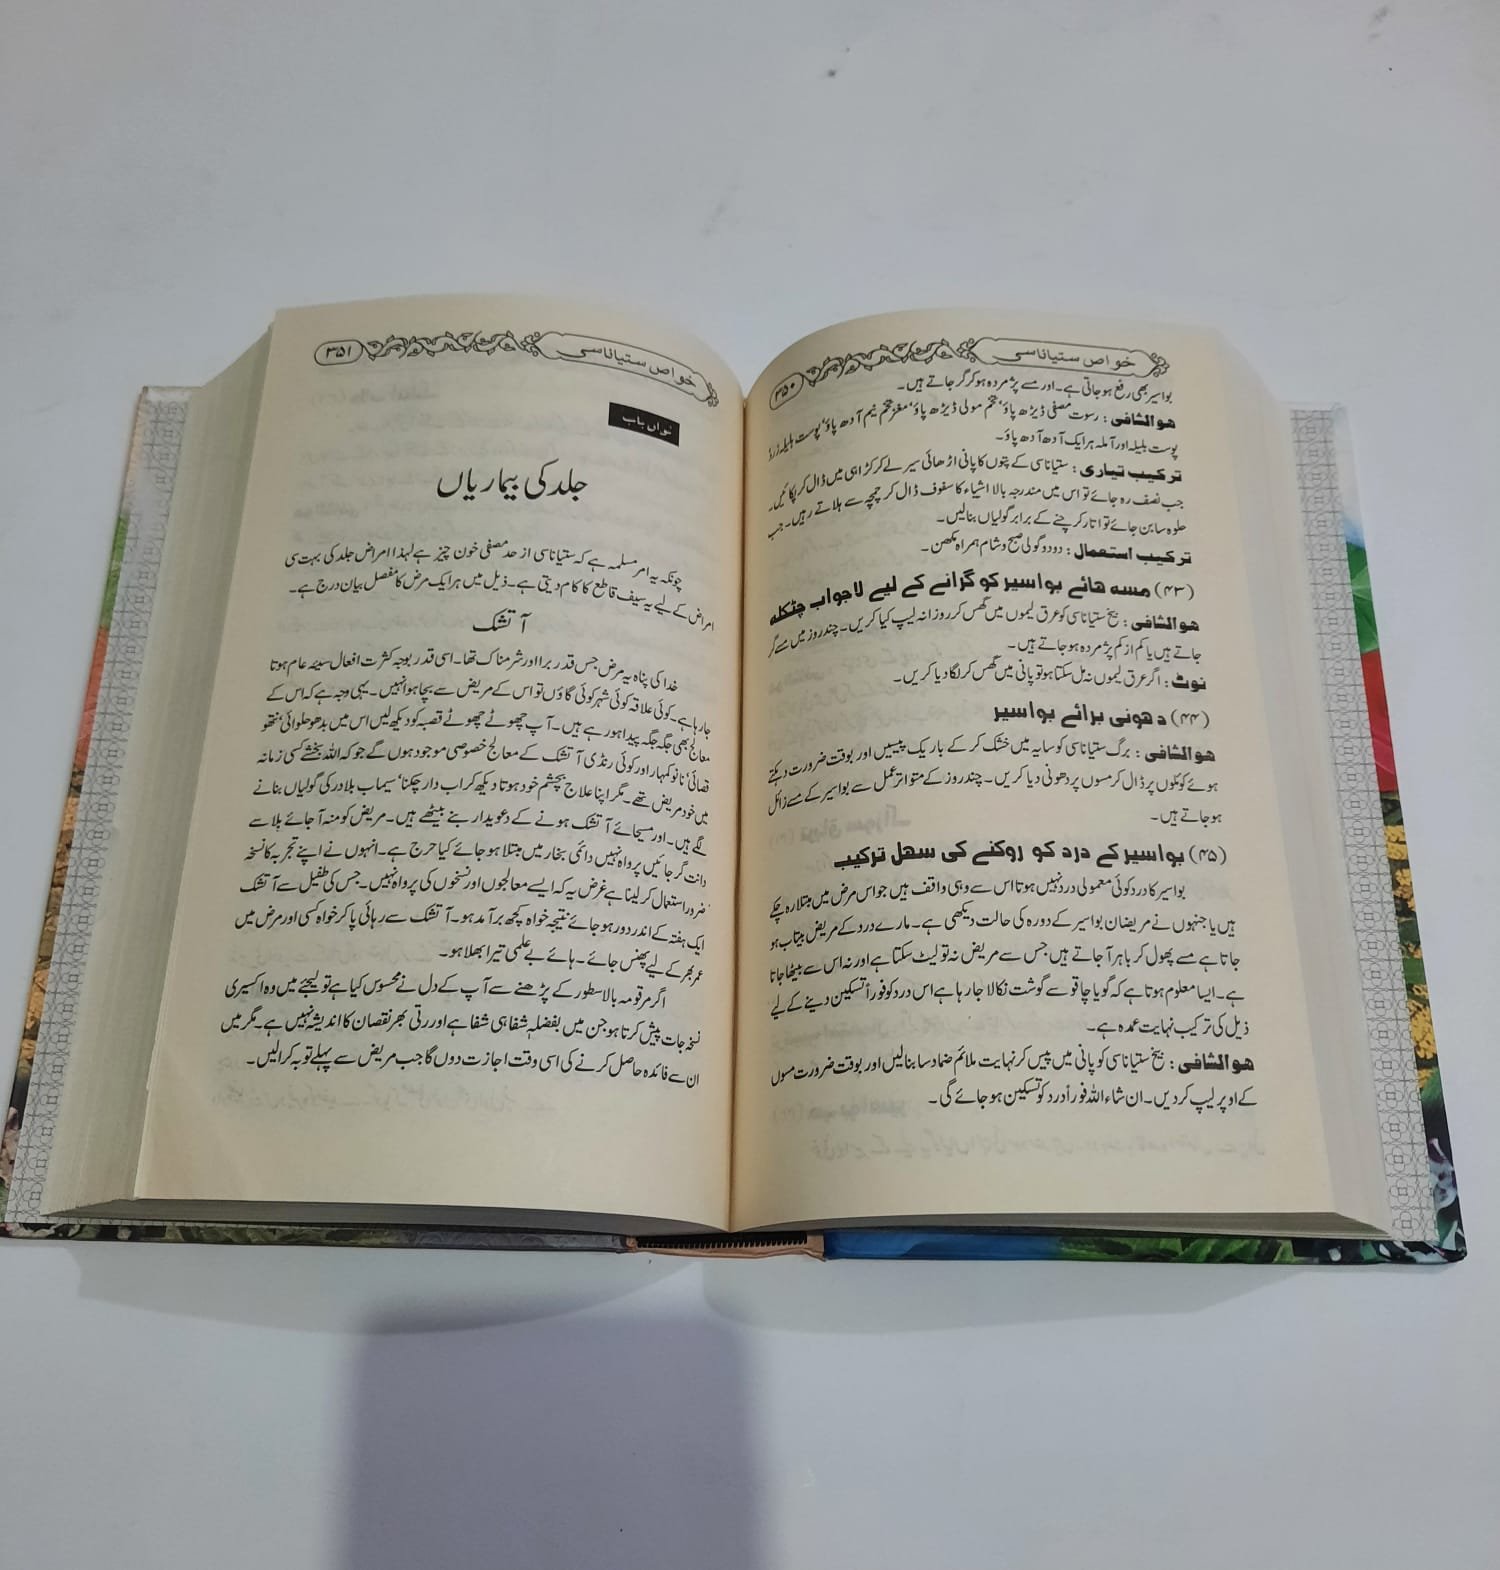 خواص ستیاناسی
۳۵۰
بواسیر بھی رفع ہو جاتی ہے۔ اور مسے پژمردہ ہو کر گر جاتے ہیں۔
هو الشافی : رسوت مصفی ڈیڑھ پاؤ، تخم مولی ڈیڑھ پاؤ، مغز تخم نیم آدھ پاؤ، پوست ہلیلہ زرد
پوست بلیلہ اور آملہ ہر ایک آدھ آدھ پاؤ۔
ترکیب تیاری : ستیاناسی کے پتوں کا پانی اڑھائی سیر لے کر کڑاہی میں ڈال کر پکائیں۔
جب نصف رہ جائے تو اس میں مندرجہ بالا اشیاء کا سفوف ڈال کر چمچہ سے ہلاتے رہیں۔ جب
حلوہ سا بن جائے تو اتار کر چنے کے برابر گولیاں بنالیں۔
ترکیب استعمال : دو دو گولی صبح و شام ہمراہ مکھن۔
(۴۳) مسه هائے بواسیر کو گرانے کے لیے لاجواب چٹکله
هو الشافی : بیخ ستیاناسی کو عرق لیموں میں گھس کر روزانہ لیپ کیا کریں۔ چند روز میں مسے گر
جاتے ہیں یا کم از کم پژمردہ ہو جاتے ہیں۔
نوٹ : اگر عرق لیموں نہ مل سکتا ہو تو پانی میں گھس کر لگا دیا کریں۔
(۴۴) دھونی برائے بواسیر
هو الشافی : برگ ستیاناسی کو سایہ میں خشک کر کے باریک پیسیں اور بوقت ضرورت دہکتے
ہوئے کوئلوں پر ڈال کر مسوں پر دھونی دیا کریں۔ چند روز کے متواتر عمل سے بواسیر کے مسے زائل
ہو جاتے ہیں۔
(۴۵) بواسیر کے درد کو روکنے کی سهل ترکیب
بواسیر کا درد کوئی معمولی درد نہیں ہوتا اس سے وہی واقف ہیں جو اس مرض میں مبتلا رہ چکے
ہیں یا جنہوں نے مریضان بواسیر کے دورہ کی حالت دیکھی ہے۔ مارے درد کے مریض بیتاب ہو
جاتا ہے مسے پھول کر باہر آ جاتے ہیں جس سے مریض نہ تو لیٹ سکتا ہے اور نہ اس سے بیٹھا جاتا
ہے۔ ایسا معلوم ہوتا ہے کہ گویا چاقو سے گوشت نکالا جا رہا ہے اس درد کو فوراً تسکین دینے کے لیے
ذیل کی ترکیب نہایت عمدہ ہے۔
هو الشافی : بیخ ستیاناسی کو پانی میں پیس کر نہایت ملائم ضماد سا بنالیں اور بوقت ضرورت مسوں
کے اوپر لیپ کر دیں۔ ان شاء اللہ فوراً درد کو تسکین ہو جائے گی۔
خواص ستیاناسی
۳۵۱
نواں باب
جلد کی بیماریاں
چونکہ یہ امر مسلمہ ہے کہ ستیاناسی از حد مصفی خون چیز ہے لہٰذا امراض جلد کی بہت سی
امراض کے لیے یہ سیف قاطع کا کام دیتی ہے۔ ذیل میں ہر ایک مرض کا مفصل بیان درج ہے۔
آتشک
خدا کی پناہ یہ مرض جس قدر برا اور شرمناک تھا۔ اسی قدر بوجہ کثرت افعال سیئہ عام ہوتا
جا رہا ہے۔ کوئی علاقہ کوئی شہر کوئی گاؤں تو اس کے مریض سے بچا ہوا نہیں۔ یہی وجہ ہے کہ اس کے
معالج بھی جگہ جگہ پیدا ہو رہے ہیں۔ آپ چھوٹے چھوٹے قصبہ کو دیکھ لیں اس میں بدھو حلوائی، نتھو
قصائی، نانو کمہار اور کوئی رنڈی آتشک کے معالج خصوصی موجود ہوں گے جو کہ اللہ بخشے کسی زمانہ
میں خود مریض تھے۔ مگر اپنا علاج بچشم خود ہوتا دیکھ کر اب دار چکنا، سیماب بلادر کی گولیاں بنانے
لگے ہیں۔ اور مسیحائے آتشک ہونے کے دعویدار بنے بیٹھے ہیں۔ مریض کو منہ آ جائے بلا سے
دانت گر جائیں پرواہ نہیں دائمی بخار میں مبتلا ہو جائے کیا حرج ہے۔ انہوں نے اپنے تجربہ کا نسخہ
ضرور استعمال کر لینا ہے غرض یہ کہ ایسے معالجوں اور نسخوں کی پرواہ نہیں۔ جس کی طفیل سے آتشک
ایک ہفتہ کے اندر دور ہو جائے نتیجہ خواہ کچھ برآمد ہو۔ آتشک سے رہائی پا کر خواہ کسی اور مرض میں
عمر بھر کے لیے پھنس جائے۔ ہائے بے علمی تیرا بھلا ہو۔
اگر مرقومہ بالا سطور کے پڑھنے سے آپ کے دل نے محسوس کیا ہے تو لیجئے میں وہ اکسیری
نسخہ جات پیش کرتا ہو جن میں بفضلہٖ شفا ہی شفا ہے اور رتی بھر نقصان کا اندیشہ نہیں ہے۔ مگر میں
ان سے فائدہ حاصل کرنے کی اسی وقت اجازت دوں گا جب مریض سے پہلے توبہ کرالیں۔